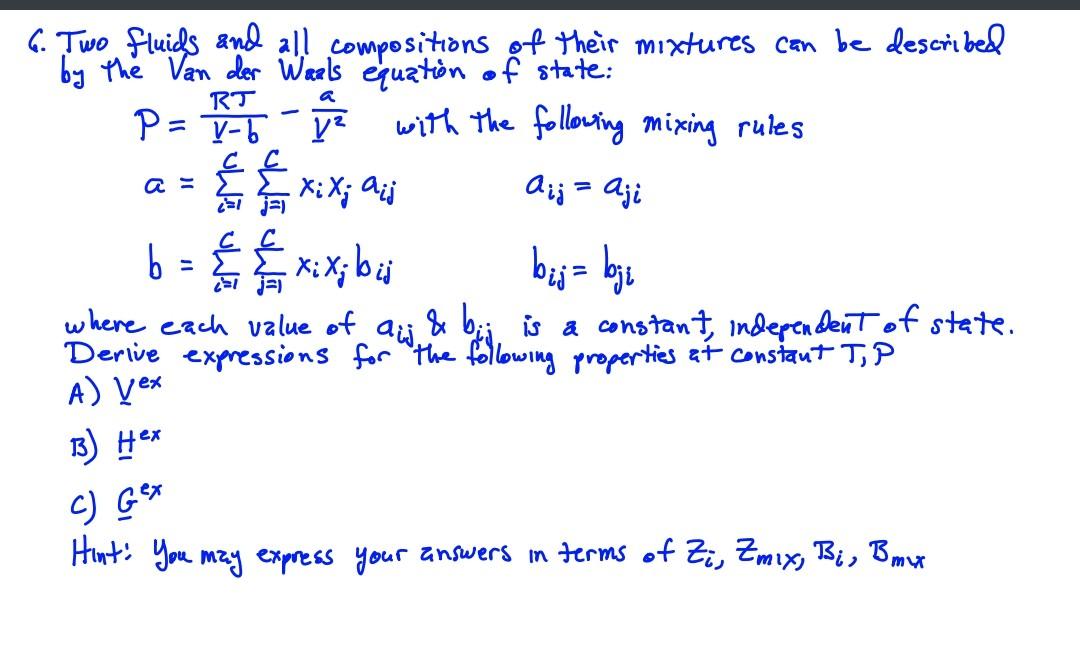 6. Two fluids and all compositions of their mixtures can be described
by the Van der Waals equation of state:
P = RT/(V-b) - a/V² with the following mixing rules
a = C∑i=1 C∑j=1 xixj aij aij = aji
b = C∑i=1 C∑j=1 xixj bij bij = bji
where each value of aij & bij is a constant, independent of state.
Derive expressions for the following properties at constant T, P
A) V^ex
B) H^ex
C) G^ex
Hint: You may express your answers in terms of Zi, Zmix, Bi, Bmix